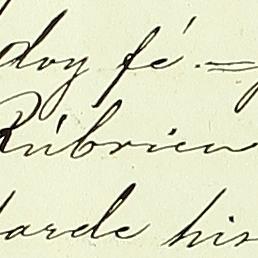 doy fé.=
Rúbricu
tarde his